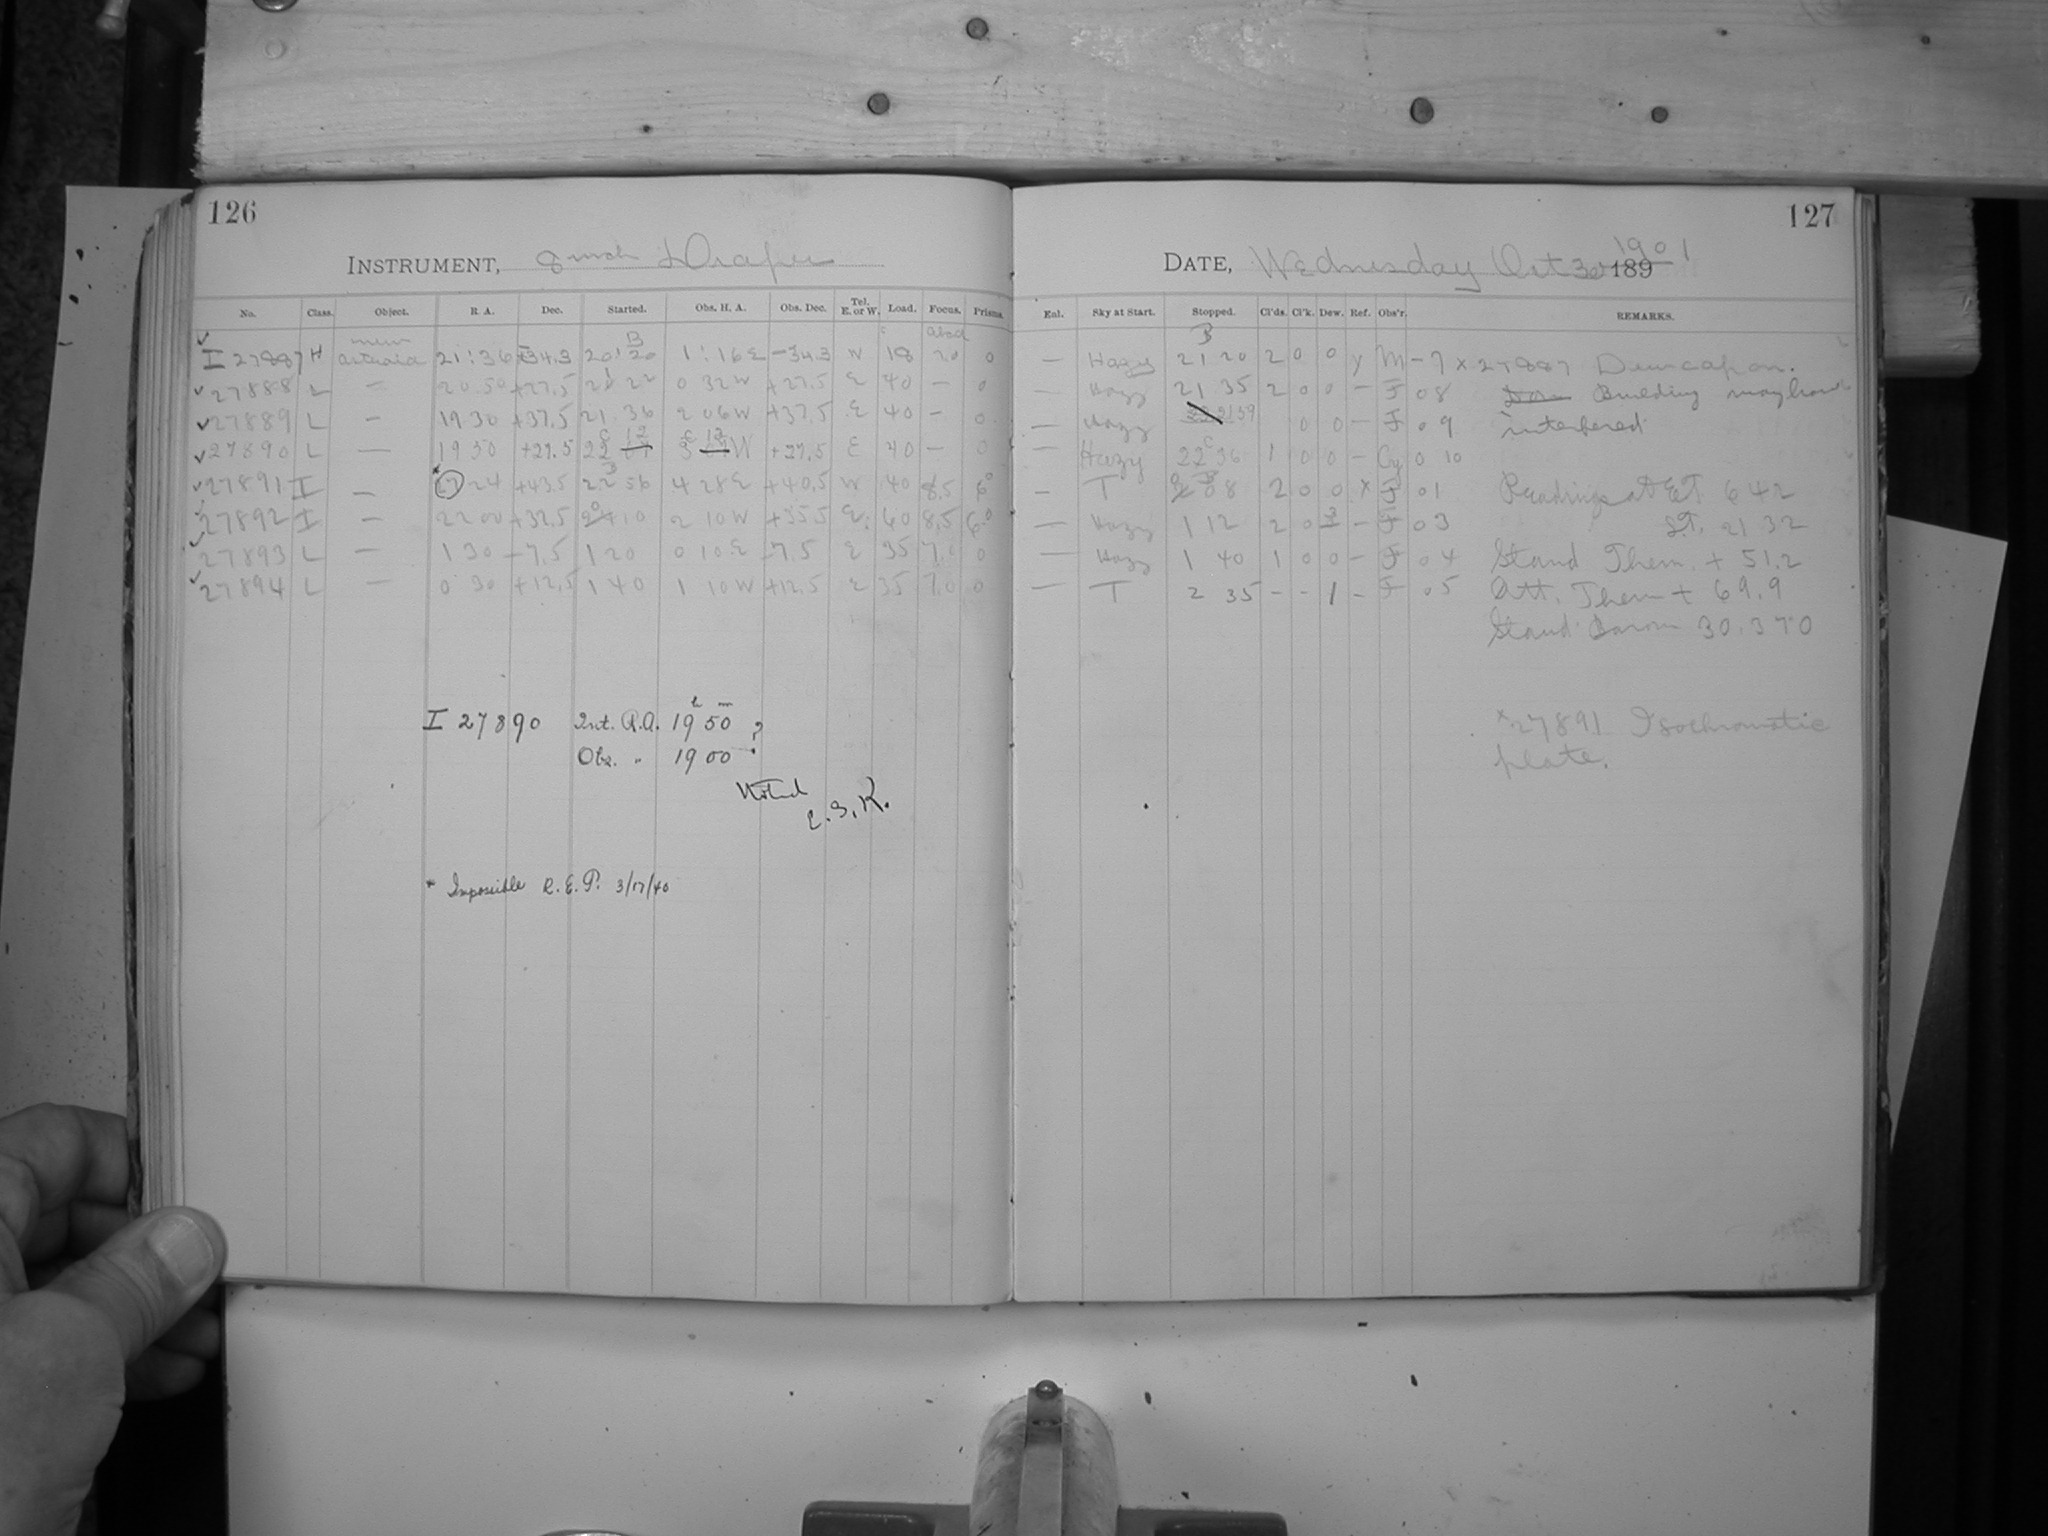 126
INSTRUMENT, 8 inch Draper
No. Class. Object. R. A. Dec. Started. Obs. H. A. Obs. Dec. Tel. E. or W. Load. Focus. Prisms.
I 27887 H 21:36 -34.3 20 20 1:16 E -34.3 W 18 0
27888 L — 20 50 +27.5 21 22 0 32 W +27.5 E 40 — 0
27889 L — 19 30 +37.5 21 36 2 06 W +37.5 E 40 — 0
27890 L — 19 50 +27.5 22 12 3 12 W +27.5 E 40 — 0
27891 I — 24 +43.5 22 56 4 28 E +40.5 W 40 8.5 6°
27892 I — 22 00 +32.5 0 10 2 10 W +35.5 E 60 8.5 6°
27893 L — 1 30 -7.5 1 20 0 10 E -7.5 E 35 7.0 0
27894 L — 0 30 +12.5 1 40 1 10 W +12.5 E 35 7.0 0
I 27890 Int. R.A. 19h 50m ?
Obs. " 19 00
Noted
E.S.K.
* Impossible R.E.P. 3/17/40
127
DATE, Wednesday Oct 30 189 1901
Enl. Sky at Start. Stopped. Cl'ds. Cl'k. Dew. Ref. Obs'r. REMARKS.
— Hazy 21 20 2 0 0 y M – 7 x 27887 Dewcap on.
— Hazy 21 35 2 0 0 – F 08 Building may have
— Hazy 21 59 0 0 – F 09 interfered
— Hazy 22 36 1 0 0 – Cy 0 10
– T 08 2 0 0 x F 01 Readings at E.T. 6 42
— Hazy 1 12 2 0 3 – F 03 S.T. 21 32
— Hazy 1 40 1 0 0 – F 04 Stand Them. + 51.2
— T 2 35 – – 1 – F 05 Att. Them + 69.9
Stand Barom 30.370
x 27891 Isochromatic
plate.